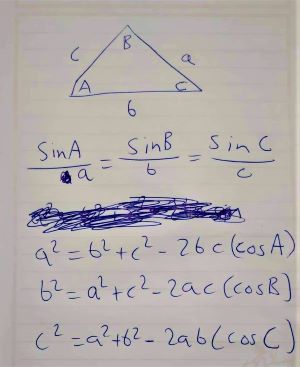 B
c a
A C
b
SinA/a = SinB/b = SinC/c
a² = b² + c² - 2bc (cosA)
b² = a² + c² - 2ac (cosB)
c² = a² + b² - 2ab (cosC)